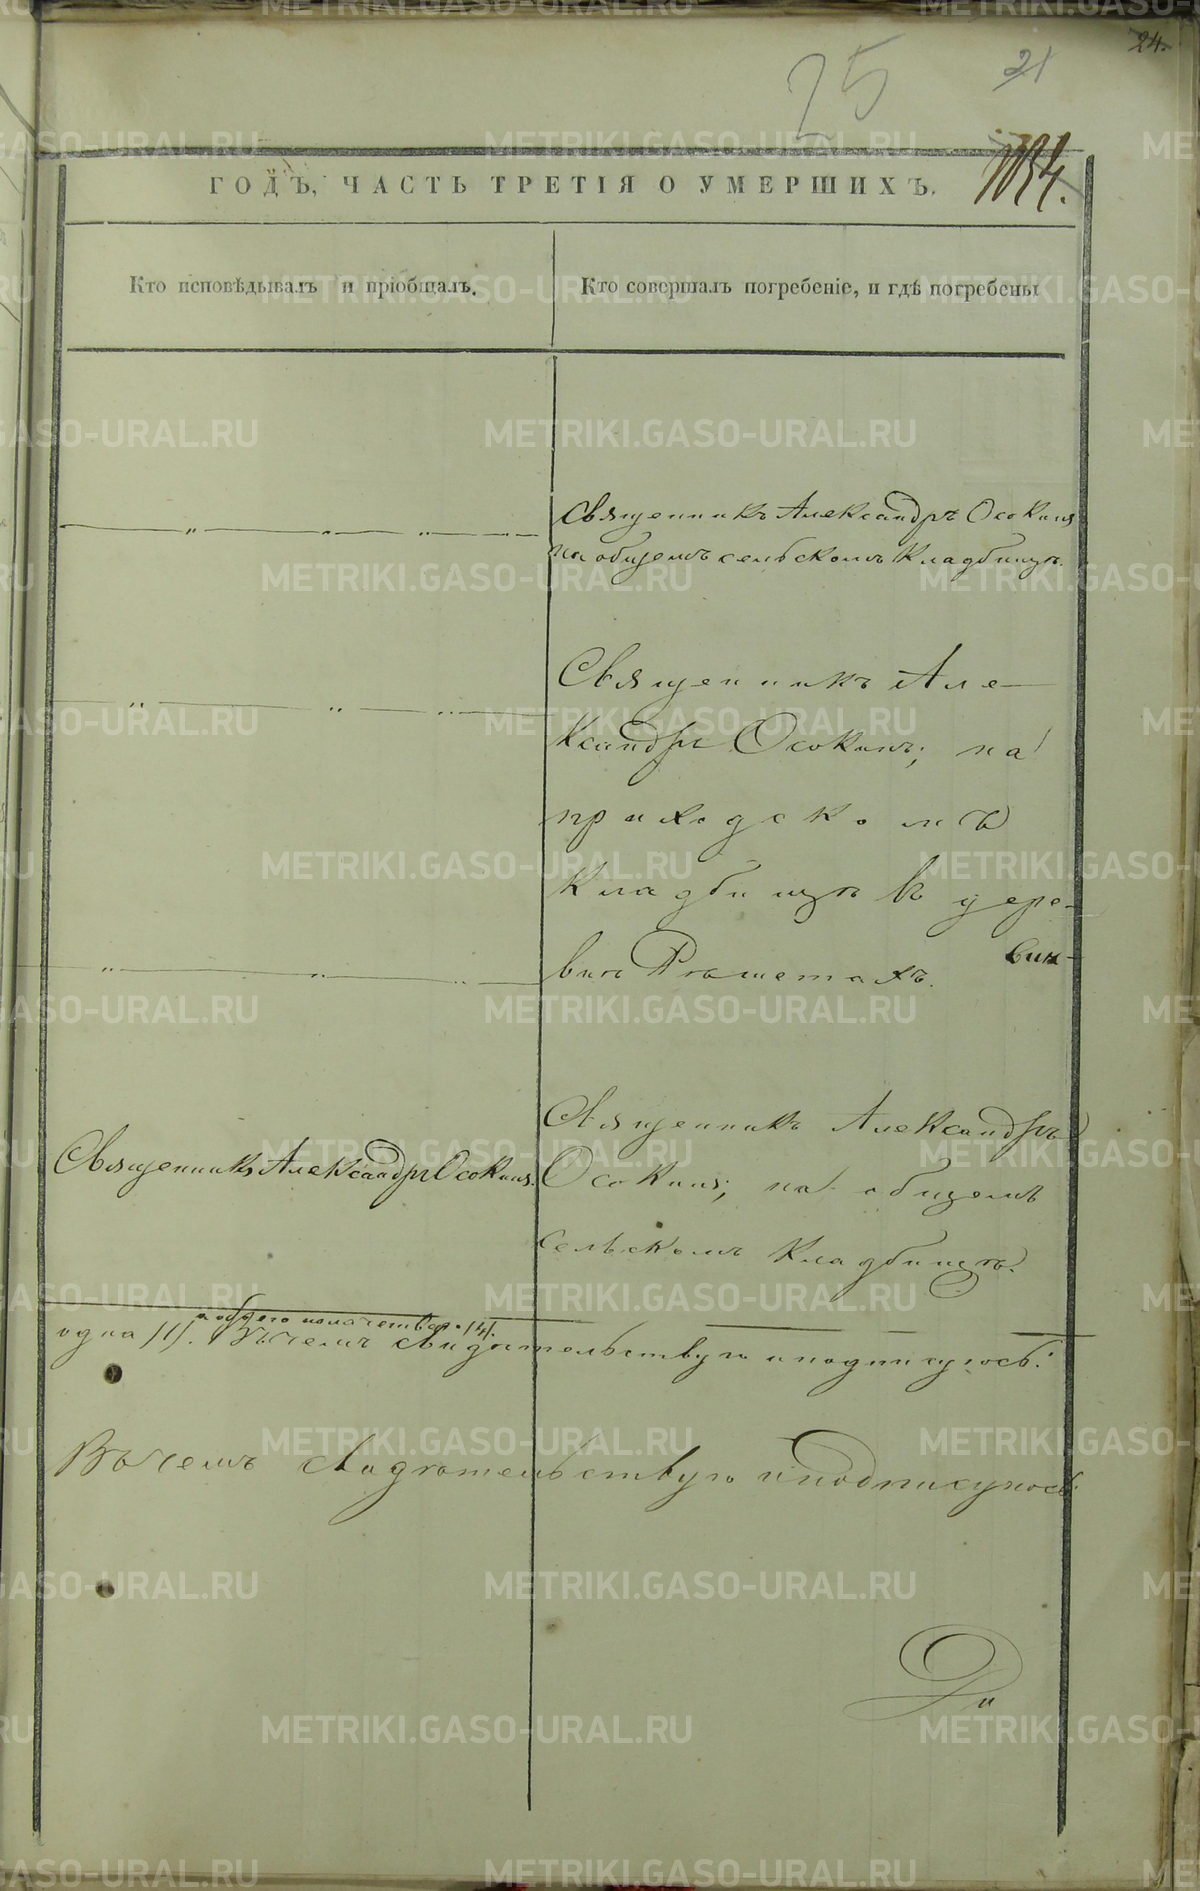 24.
25
21
ГОДЪ, ЧАСТЬ ТРЕТІЯ О УМЕРШИХЪ.
Кто исповѣдывалъ и пріобщалъ.
Кто совершалъ погребеніе, и гдѣ погребены
Священникъ Александръ Осокинъ
на общемъ сельскомъ кладбищѣ.
Священникъ Але-
ксандръ Осокинъ, на
приходскомъ
кладбищѣ въ дере-
внѣ Рѣшетахъ.
Священникъ Александръ Осокинъ.
Священникъ Александръ
Осокинъ, на общемъ
сельскомъ кладбищѣ.
а обоего пола четверо /4/.
одна /1/. Въ чемъ свидѣтельствую и подписуюсь:
Въ чемъ свидѣтельствую и подписуюсь
Ди
METRIKI.GASO-URAL.RU